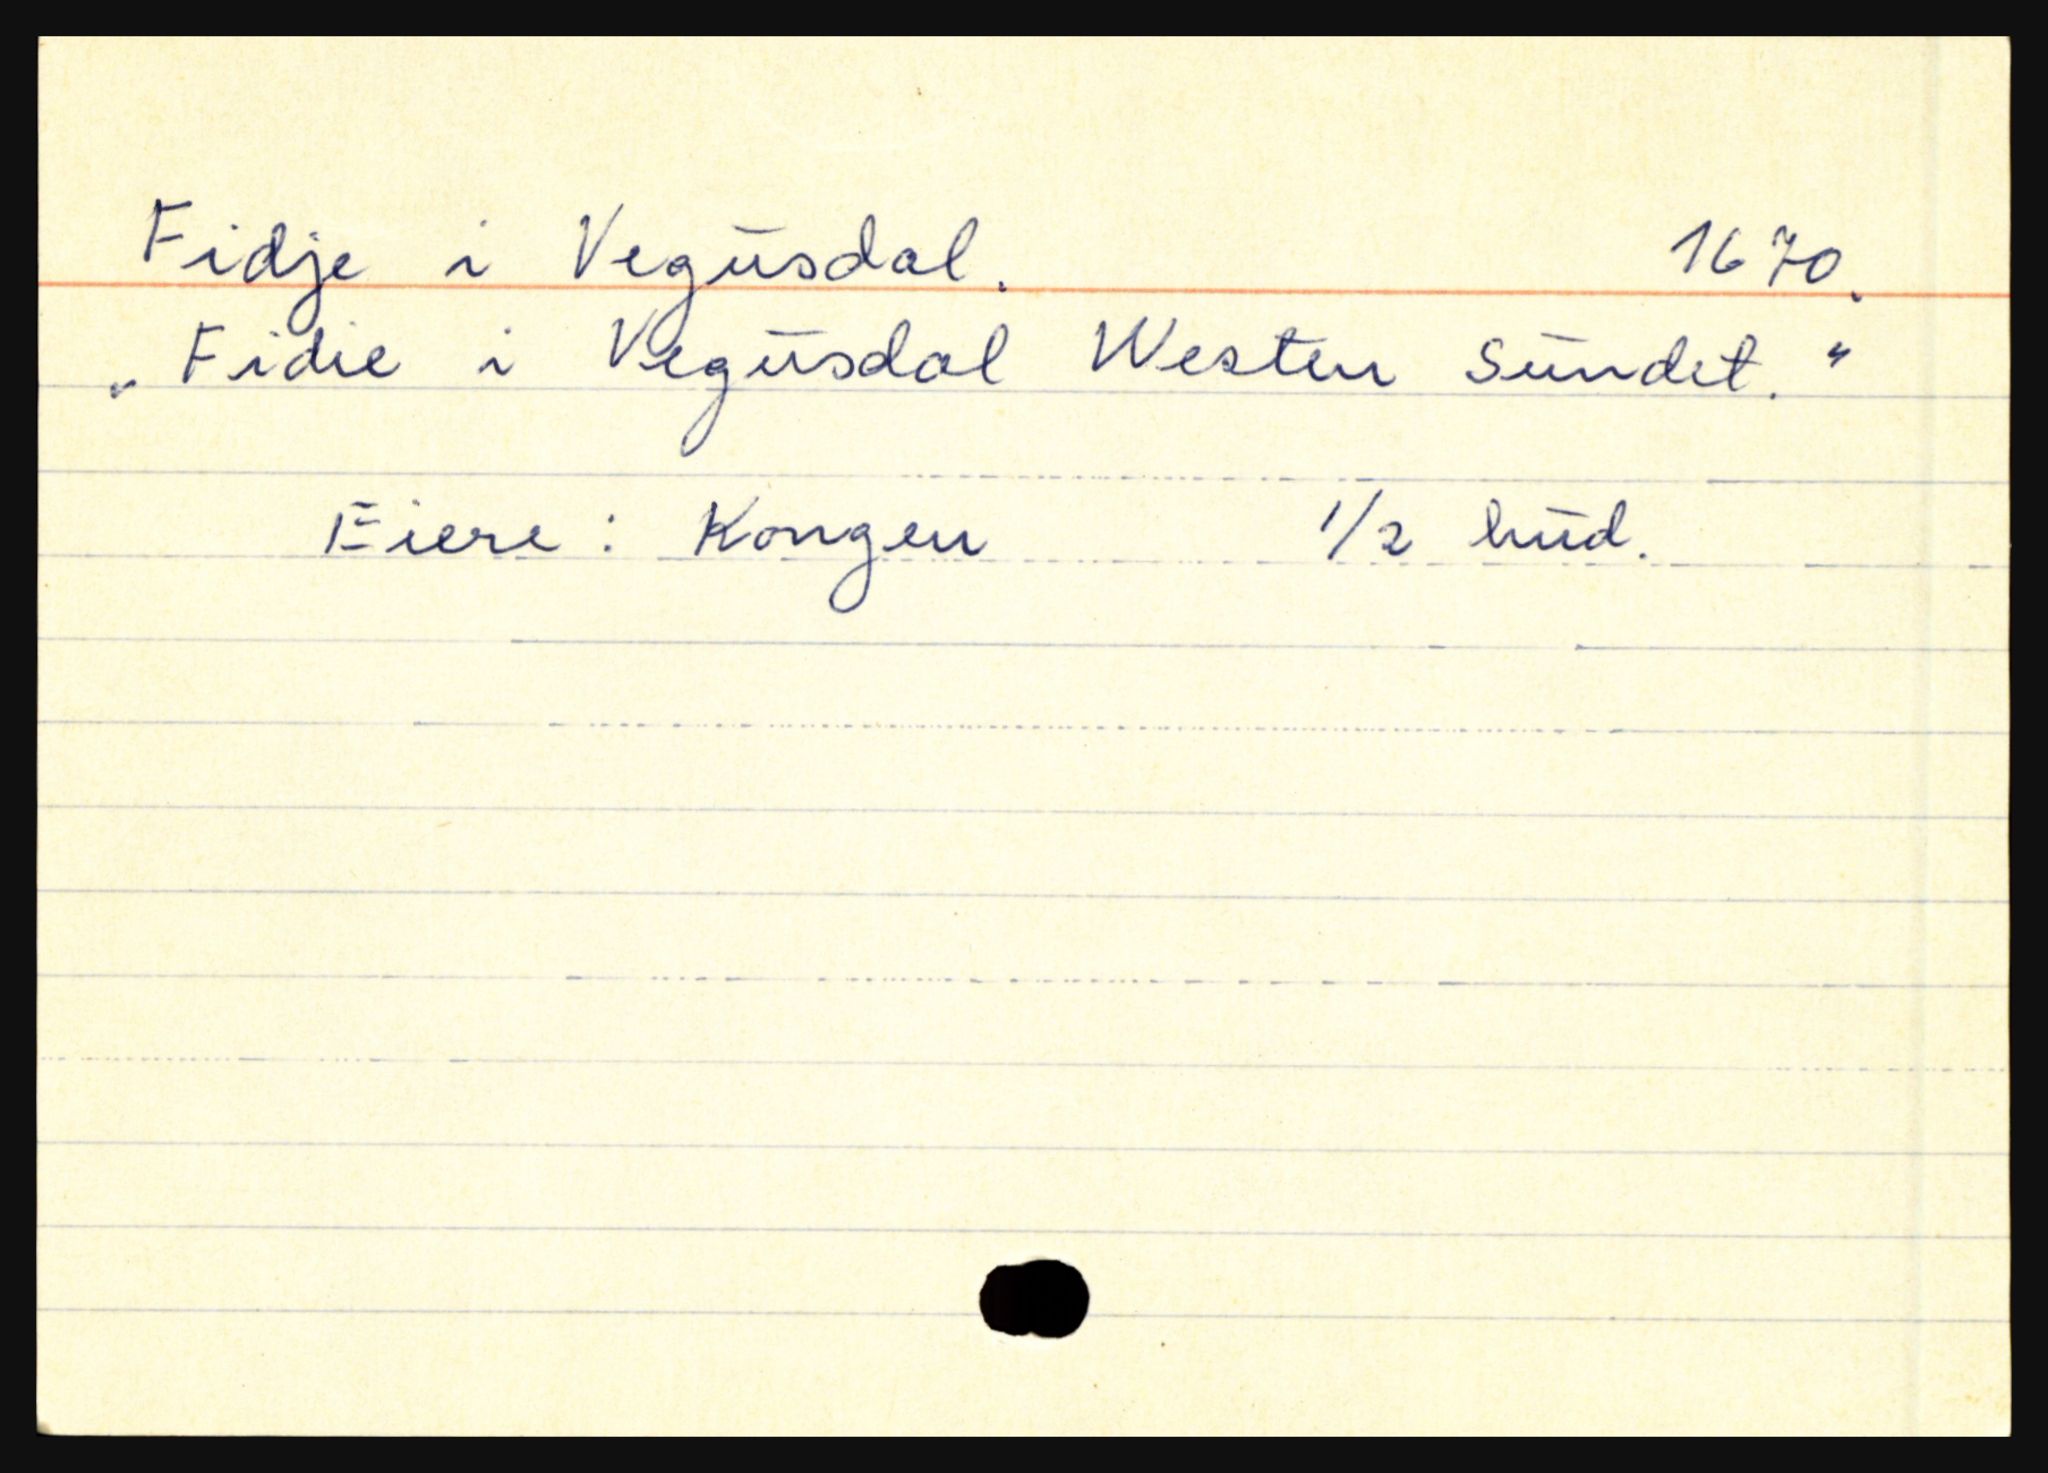 Fidje i Vegūsdal. 1670.
„Fidie i Vegūsdal Westen Sūndet."
Eiere: Kongen 1/2 hūd.